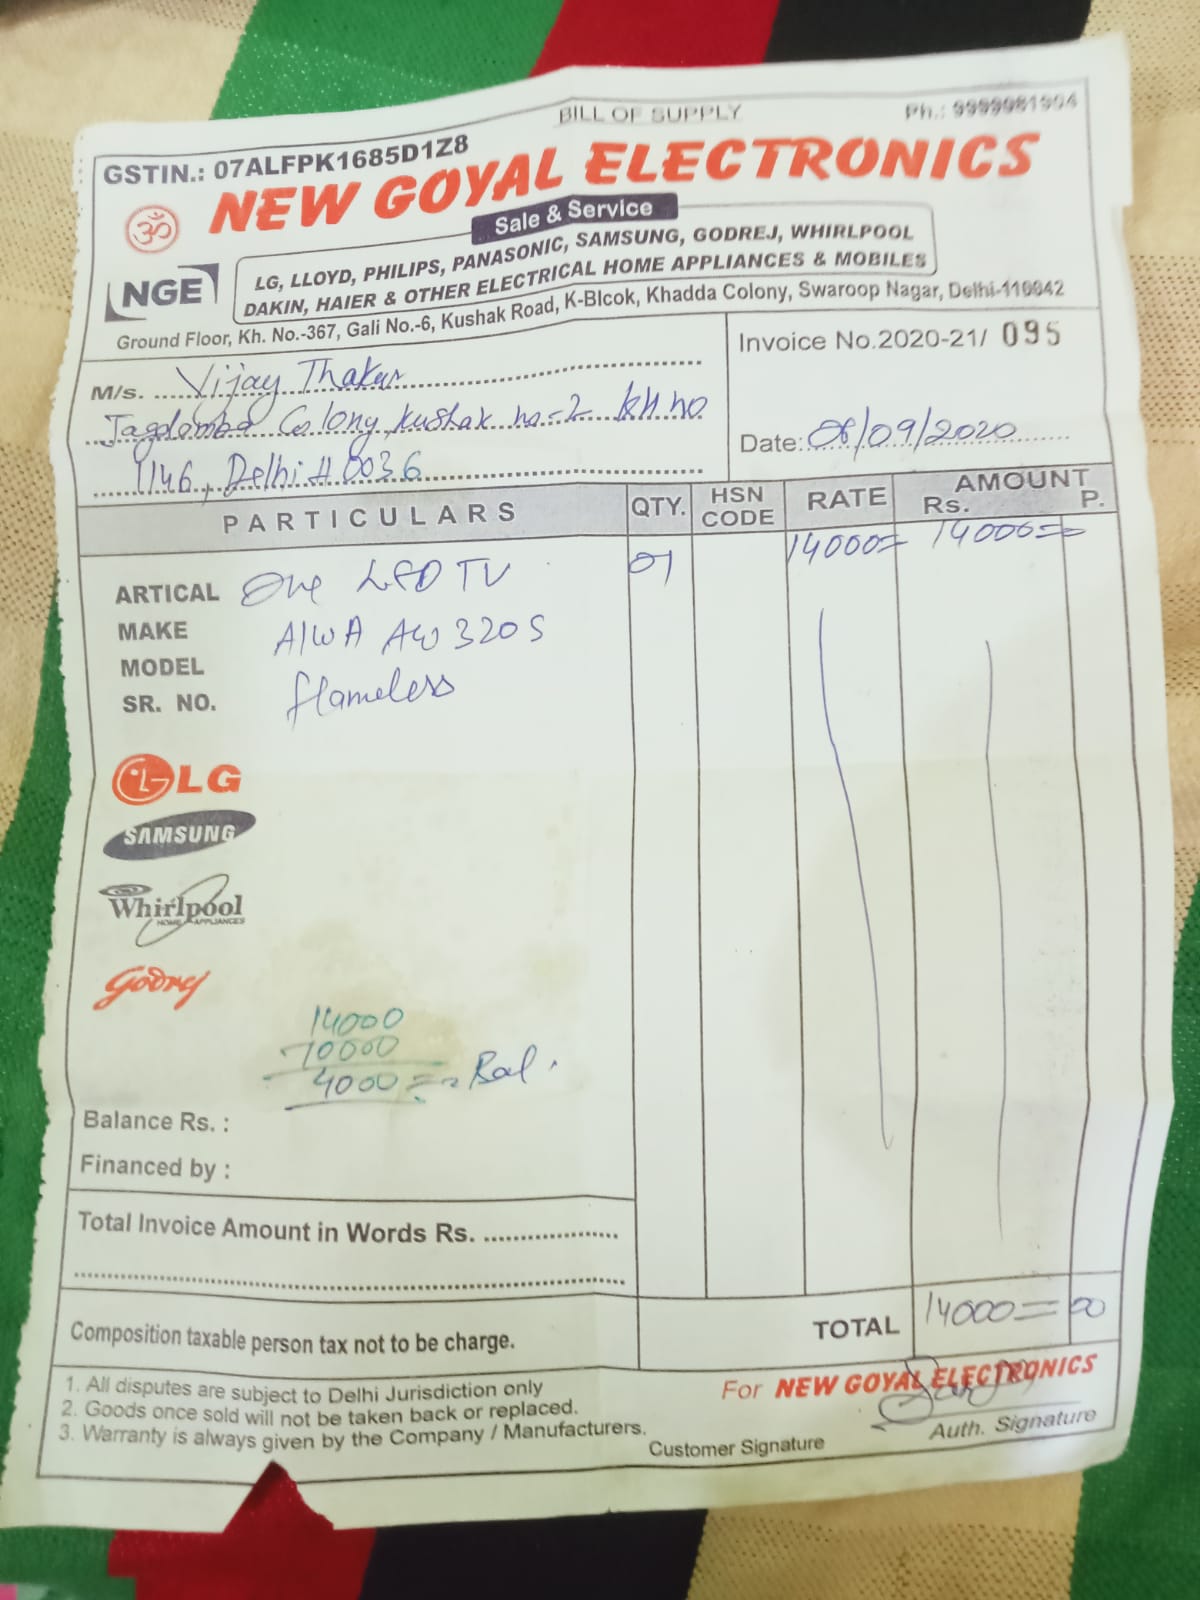 BILL OF SUPPLY
Ph.: 9999081904
GSTIN.: 07ALFPK1685D1Z8
NEW GOYAL ELECTRONICS
Sale & Service
ॐ
NGE
LG, LLOYD, PHILIPS, PANASONIC, SAMSUNG, GODREJ, WHIRLPOOL
DAKIN, HAIER & OTHER ELECTRICAL HOME APPLIANCES & MOBILES
Ground Floor, Kh. No.-367, Gali No.-6, Kushak Road, K-Blcok, Khadda Colony, Swaroop Nagar, Delhi-110042
M/s. Vijay Thakur
Jagdamba Colony, Kushak no=2 KH no
1146, Delhi 110036
Invoice No.2020-21/ 095
Date: 08/09/2020
PARTICULARS QTY. HSN CODE RATE AMOUNT Rs. P.
ARTICAL One LED TV 01 14000= 14000=
MAKE AIWA AW320S
MODEL
SR. NO. flameless
LG
SAMSUNG
Whirlpool
HOME APPLIANCES
Godrej
14000
-10000
4000 = Bal.
Balance Rs. :
Financed by :
Total Invoice Amount in Words Rs.
Composition taxable person tax not to be charge.
TOTAL 14000=00
1. All disputes are subject to Delhi Jurisdiction only
2. Goods once sold will not be taken back or replaced.
3. Warranty is always given by the Company / Manufacturers.
For NEW GOYAL ELECTRONICS
Customer Signature
Auth. Signature